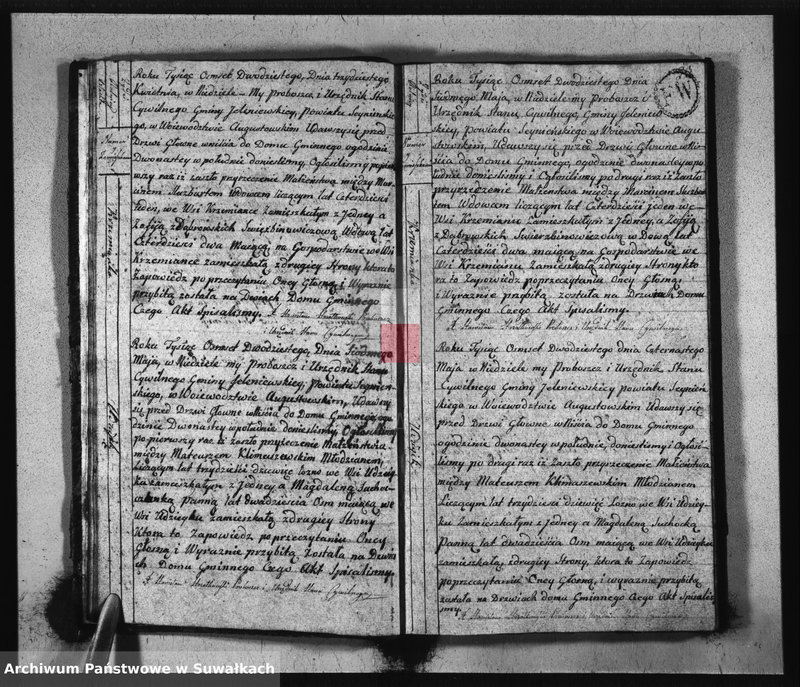 Roku Tysiąc Osmset Dwodziestego, Dnia trzydziestego
Kwietnia, w Niedziele – My proboszcz i Urzędnik Stanu
Cywilnego Gminy Jeleniewskiey, Powiatu Seynińskie
go, w Woiewodztwie Augustowskim Udawszy się przed
Drzwi Głowne wniścia do Domu Gminnego ogodzinie
Dwonastey w południe donieslismy, Ogłosilismy po pier
wszy raz iż zaszło przyrzeczenie Małżeństwa między Mar
cinem Skarbartem Wdowam liczącym lat Czterdzieści
Jeden, we Wsi Krzemiance Zamieszkałym z Jedney a
Zofiją z Dąbrowskich Swierzbinowiczową Wdową lat
Czterdzieści dwa Maiącą na Gospodarstwie we Wsi
Krzemiance zamieszkałą zdrugiey Strony ktora to
Zapowiedz po przeczytaniu Oney Głosną i Wyraznie
przybitą została na Dwiach Domu Gminnego
Czego Akt Spisalismy.
i Urzędnik Stanu Cywilnego
Roku Tysiąc Osmset Dwodziestego, Dnia Siodmego
Maja, w Niedziele my Proboszcz i Urzędnik Stanu
Cywilnego Gminy Jeleniewskiey, Powiatu Seynen-
skiego, w Woiewodztwie Augustowskim, Udawszy
się przed Drzwi Głowne wniścia do Domu Gminnego ogo
dzinie Dwonastey wpołudnie donieslismy, Ogłosilismy
po pierwszy raz iż zaszło przyrzeczenie Małżeństwa
między Mateuszem Klimeuszewskim Młodzianem,
Liczącym lat trzydzieści dziewięc lozno we Wsi Udziey
ku zamieszkałym z Jedney a Magdaleną Sucho
Panną lat dwadzieścia Osm maiącą we
Wsi Udzieyku zamieszkałą zdrugiey Strony
Ktora to Zapowiedz po przeczytaniu Oney
Głosną i Wyraznie przybitą Została na Drzwi
ch Domu Gminnego Czego Akt Spisalismy.
Krzemianka
Udzieyk
Roku Tysiąc Osmset Dwodziestego Dnia
siodmego Maja, w Niedziele my Proboszcz i
Urzędnik Stanu Cywilnego Gminy Jeleniew
skiey, powiatu Seynińskiego w Woiewodztwie Augu
stowskim, Udawszy się przed Drzwi Głowne wniś
cia do Domu Gminnego, ogodzenie dwonastey wpo
łudnie donieslismy i Ogłosilismy po drugi raz iż Zaszło
przyrzeczenie Małżeństwa między Marcinem Skarbar
tem Wdowam liczącym lat Czterdzieści jeden we
Wsi Krzemiance Zamieszkałym z Jedney, a Zofiją
z Dąbrowskich Swierzbinowiczową w Dową lat
Czterdzieści dwa maiącą na Gospodarstwie we
Wsi Krzemianiu Zamieszkałą zdrugiey Strony kto
ra to Zapowiedz poprzeczytaniu Oney Głosną,
i Wyraznie przybitą została na Drzwiach Domu
Gminnego Czego Akt Spisalismy.
Roku Tysiąc Osmset Dwodziestego dnia Czternastego
Maja w Niedziele my Proboszcz i Urzędnik Stanu
Cywilnego Gminy Jeleniewskiey powiatu Seynień
skiego w Woiewodztwie Augustowskim Udawszy się
przed Drzwi Głowne, wniścia do Domu Gminnego
ogodzinie dwonastey w południe, donieslismy i Ogłosi-
lismy po drugi raz iż Zaszło przyrzeczenie Małżeństwa
między Mateuszem Klimaszewskim Młodzianem
Liczącym lat trzydzieści dziewięc Lozno we Wsi Udziey
ku Zamieszkałym z Jedney a Magdaleną Suchocką
Panną lat dwadzieścia Osm maiącą we Wsi Udzieyku
zamieszkałą, zdrugiey Strony, ktora to Zapowiedz
poprzeczytaniu Oney Głosną, i wyraznie przybitą
została na Drzwiach domu Gminnego Czego Akt Spisalis
my.
Krzemianka
Udzieyk
Archiwum Państwowe w Suwałkach